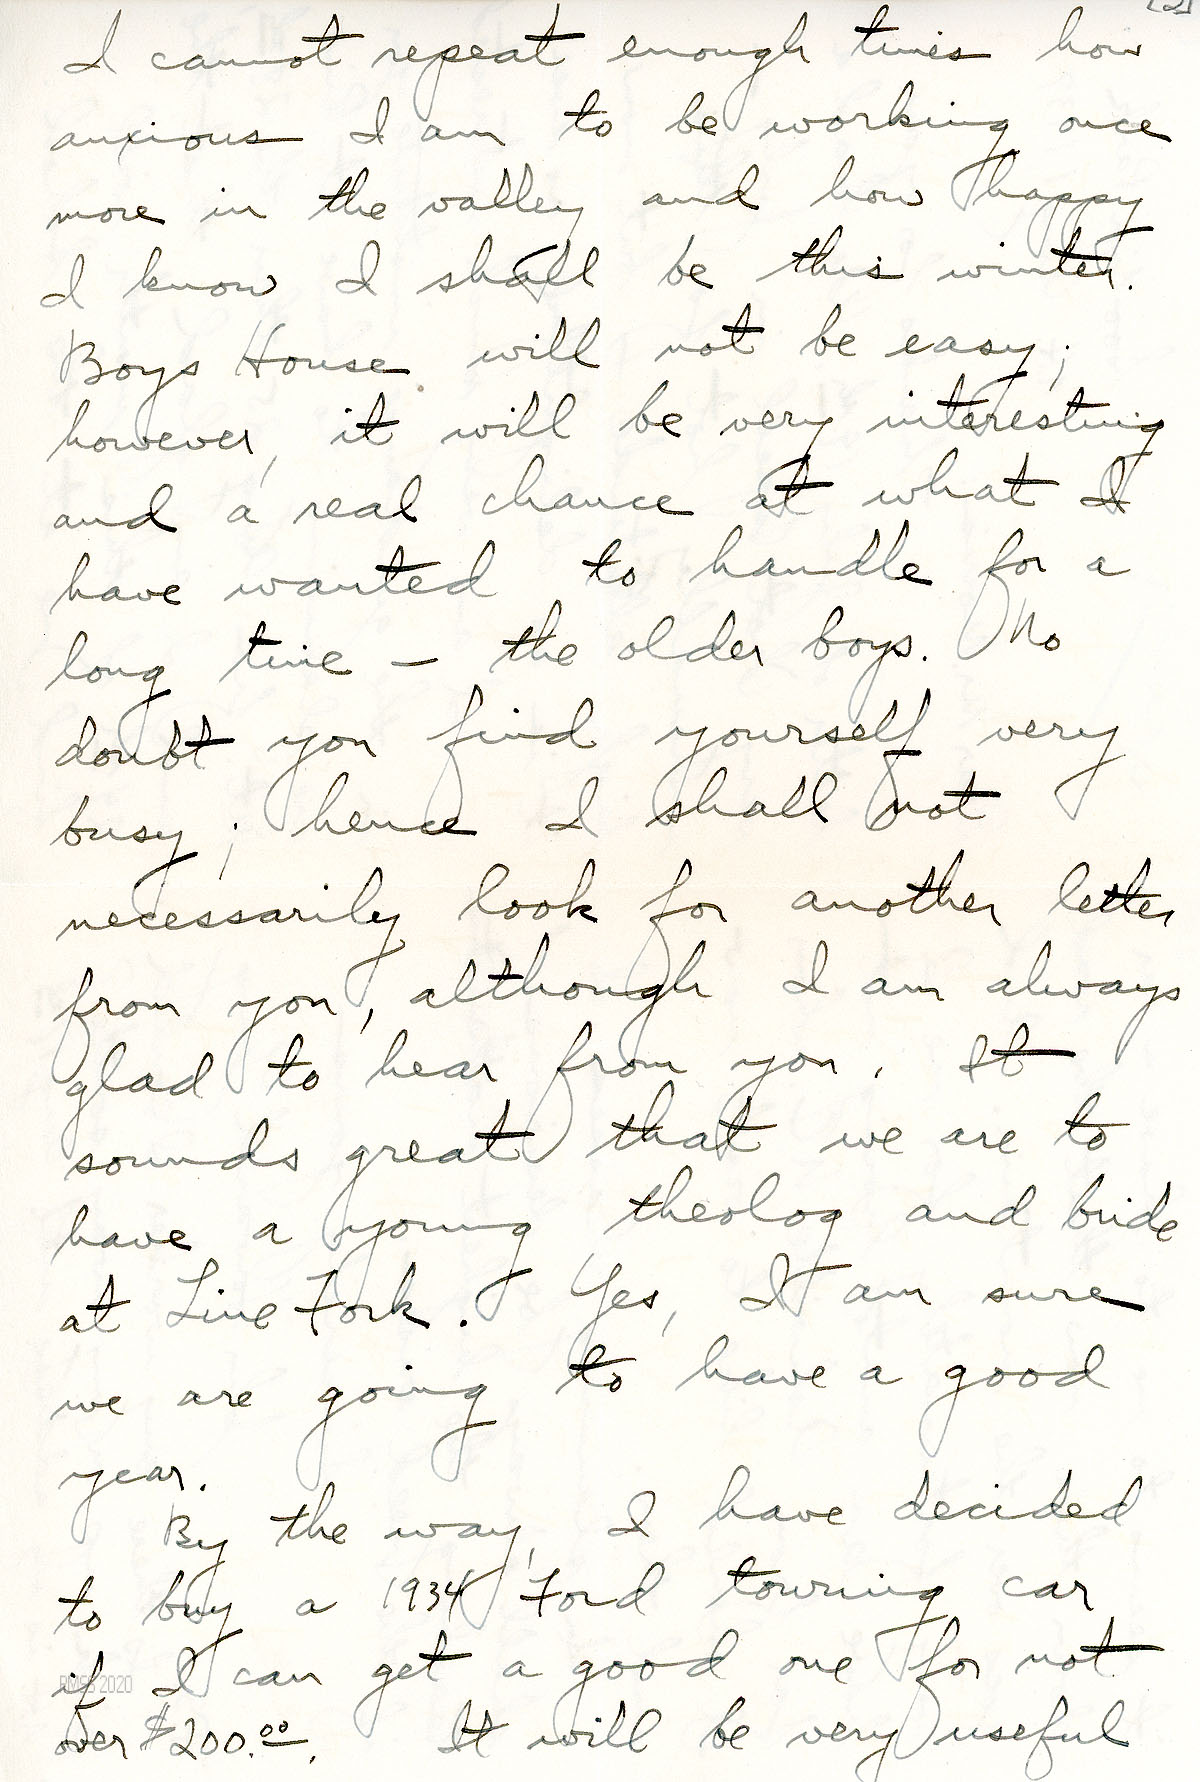 [2]
I cannot repeat enough times how
anxious I am to be working once
more in the valley and how happy
I know I shall be this winter.
Boys House will not be easy;
however, it will be very interesting
and a real chance at what I
have wanted to handle for a
long time — the older boys. No
doubt you find yourself very
busy; hence I shall not
necessarily look for another letter
from you, although I am always
glad to hear from you. It
sounds great that we are to
have a young theolog and bride
at Line Fork. Yes, I am sure
we are going to have a good
year.
By the way, I have decided
to buy a 1934 Ford touring car
if I can get a good one for not
over $200.00. It will be very useful
PMSS 2020